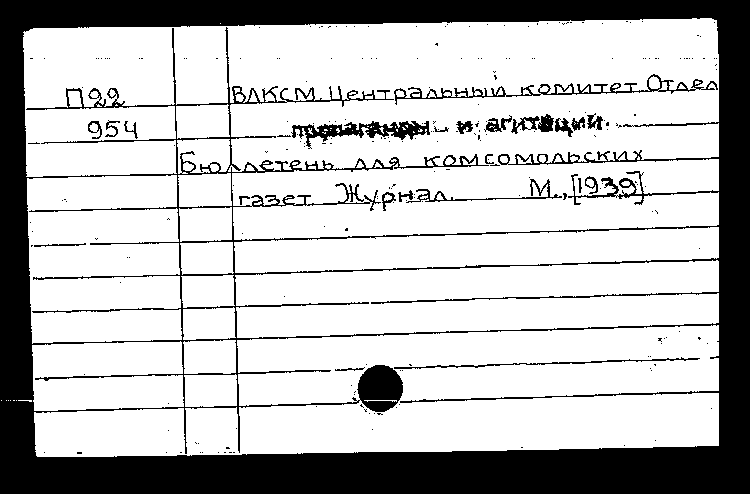 П22 ВЛКСМ. Центральный комитет Отдел
954 пропаганды и агитации.
Бюллетень для комсомольских
газет Журнал. М., [1939]